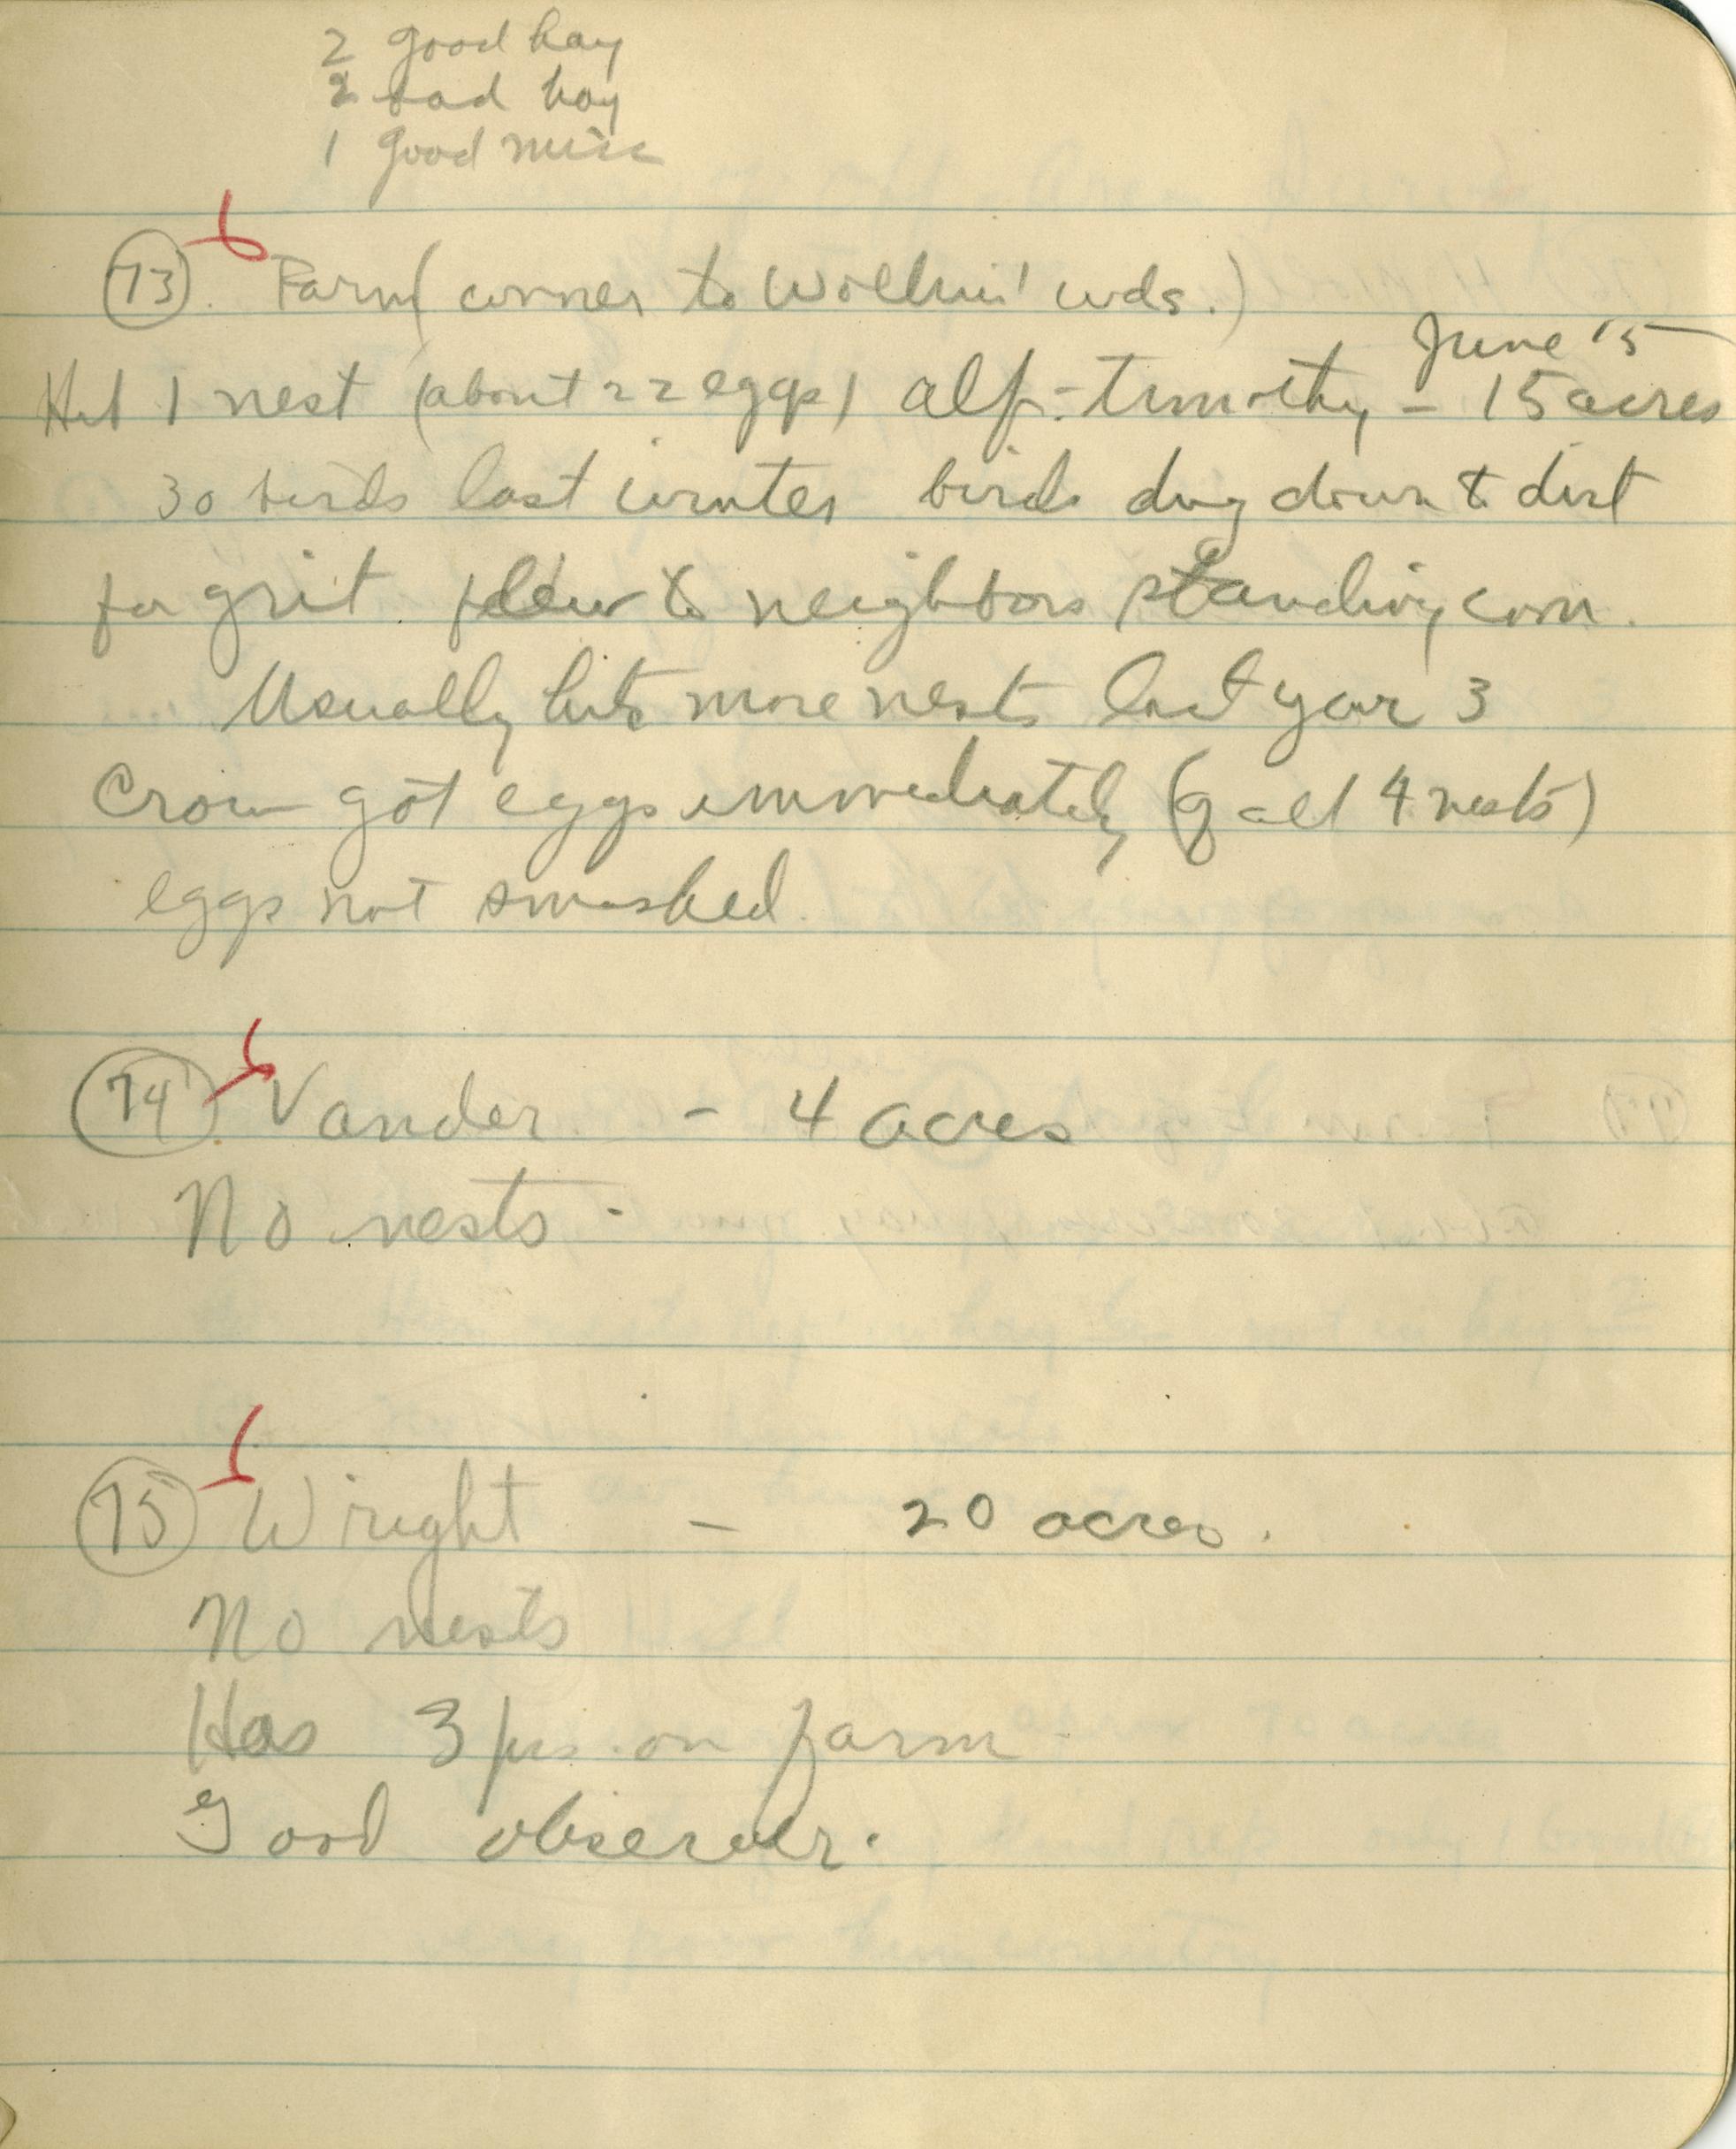 2 good hay
2 bad hay
1 good misc
6
(73). Farm (corner to wds.)
June 15
Hit 1 nest (about 22 eggs) alf.-timothy - 15 acres
30 birds last winter birds dug down to dirt
for grit flew to neighbors standing corn.
Usually hits more nests last year 3
Crow got eggs immediately (of all 4 nests)
eggs not smashed.
6
(74). Vander - 4 acres
No nests -
6
(75) Wright - 20 acres.
No nests
Has 3 prs. on farm -
Good observer.